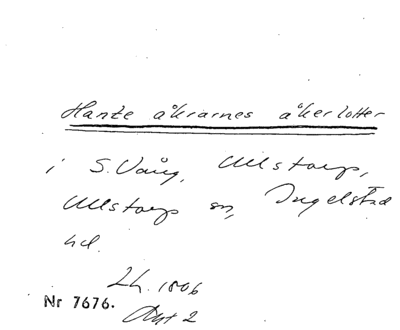 Hanke åkrarnes åkerlotter
i S. Vång, Ullstorp,
Ullstorp sn, Ingelstad
hd.
Lh. 1806
Nr 7676.
Akt 2